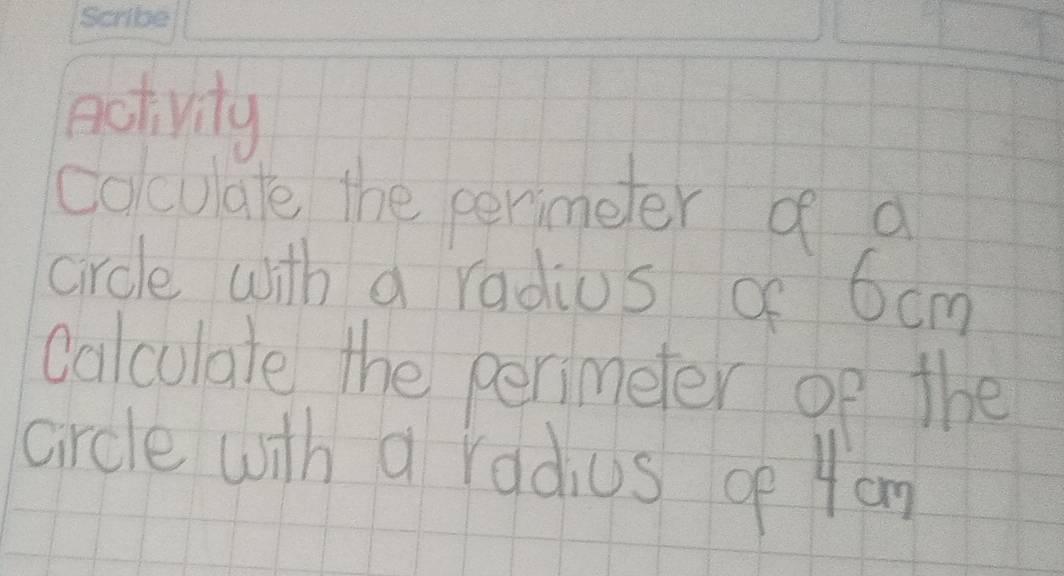 Scribe
Activity
Calculate the perimeter of a
circle with a radius of 6cm
Calculate the perimeter of the
circle with a radius of 4cm